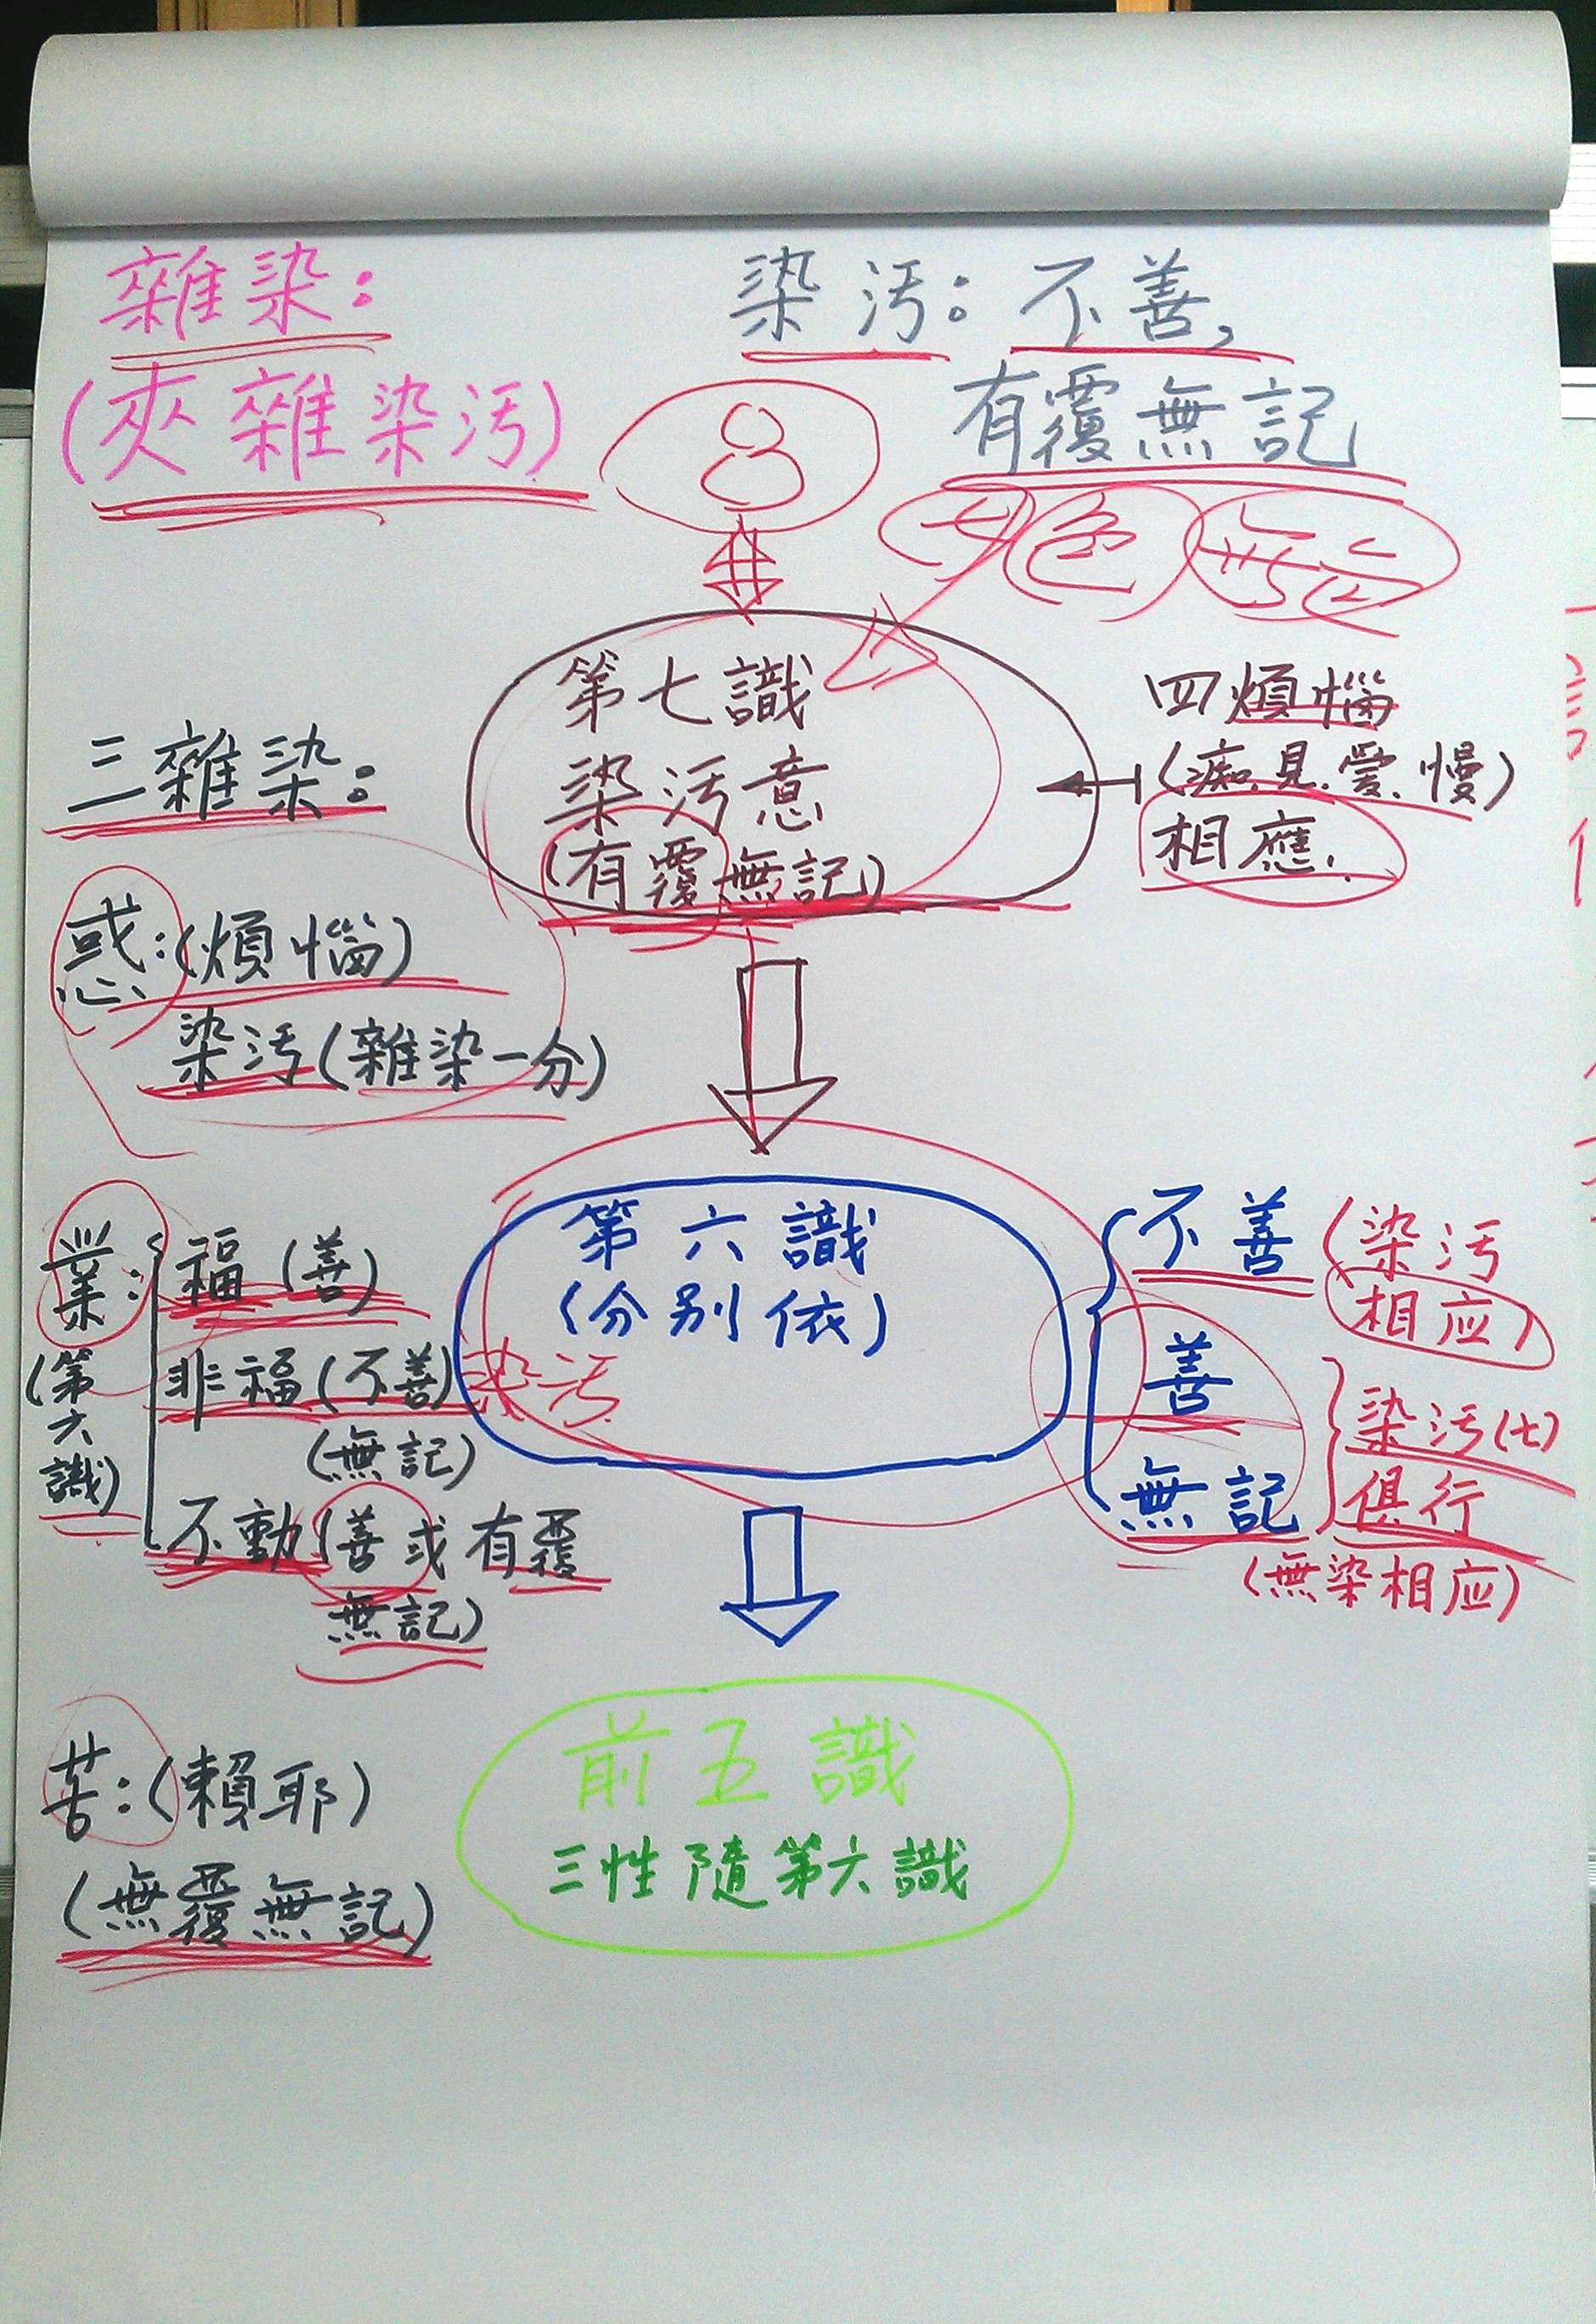 雜染:
(夾雜染污)
染污:不善,
有覆無記
8
七 色 無色
第七識
染污意
(有覆無記)
四煩惱
(痴.見.愛.慢)
相應.
三雜染:
惑:(煩惱)
染污(雜染一分)
業:
(第六識)
福(善)
非福(不善)染污
(無記)
不動(善或有覆
無記)
第六識
(分別依)
不善(染污
相应)
善
無記
染污(七)
俱行
(無染相应)
苦:(賴耶)
(無覆無記)
前五識
三性隨第六識